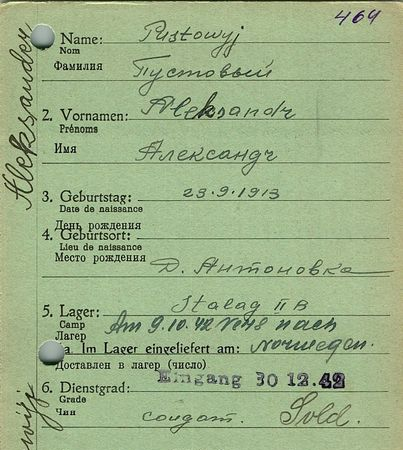 464
Name: Pustowyj
Nom
Фамилия Пустовый
2. Vornamen: Aleksandr
Prénoms
Имя Александр
3. Geburtstag: 23.9.1913
Date de naissance
День рождения
4. Geburtsort:
Lieu de naissance
Место рождения Д. Антоновка
5. Lager: Stalag II B
Camp Am 9.10.42 nach
Лагер
a. Im Lager eingeliefert am: Norwegen.
Доставлен в лагер (число)
Eingang 30 12.42
6. Dienstgrad:
Grade
Чин солдат. Sold.
Aleksander